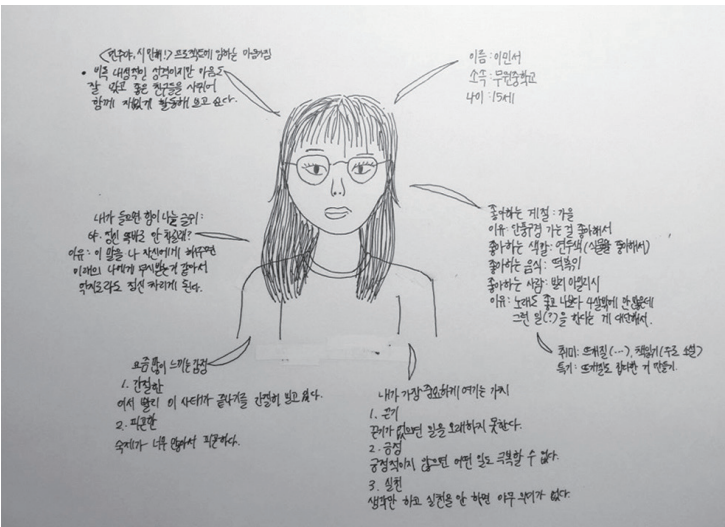 <민주야, 시민해!> 프로젝트에 임하는 마음가짐
• 비록 내성적인 성격이지만 마음도
잘 맞고 좋은 친구들을 사귀어
함께 재밌게 활동해 보고 싶다.
이름 : 이민서
소속 : 무원중학교
나이 : 15세
내가 들으면 힘이 나는 글귀 :
야. 정신 똑바로 안 차릴래?
이유 : 이 말을 나 자신에게 해주면
미래의 나에게 무시받는거 같아서
억지로라도 정신 차리게 된다.
좋아하는 계절 : 가을
이유 : 단풍구경 가는 걸 좋아해서
좋아하는 색깔 : 연두색 (식물을 좋아해서)
좋아하는 음식 : 떡볶이
좋아하는 사람 : 빌리 아일리시
이유 : 노래도 좋고 나보다 4살밖에 안 많은데
그런 일(?)을 한다는 게 대단해서.
취미 : 뜨개질 (…), 책읽기 (주로 소설)
특기 : 뜨개질로 잡다한 거 만들기
요즘 많이 느끼는 감정
1. 간절한
어서 빨리 이 사태가 끝나기를 간절히 빌고 있다.
2. 피곤한
숙제가 너무 많아서 피곤하다.
내가 가장 중요하게 여기는 가치
1. 끈기
끈기가 없으면 일을 오래하지 못한다.
2. 긍정
긍정적이지 않으면 어떤 일도 극복할 수 없다.
3. 실천
생각만 하고 실천을 안 하면 아무 의미가 없다.